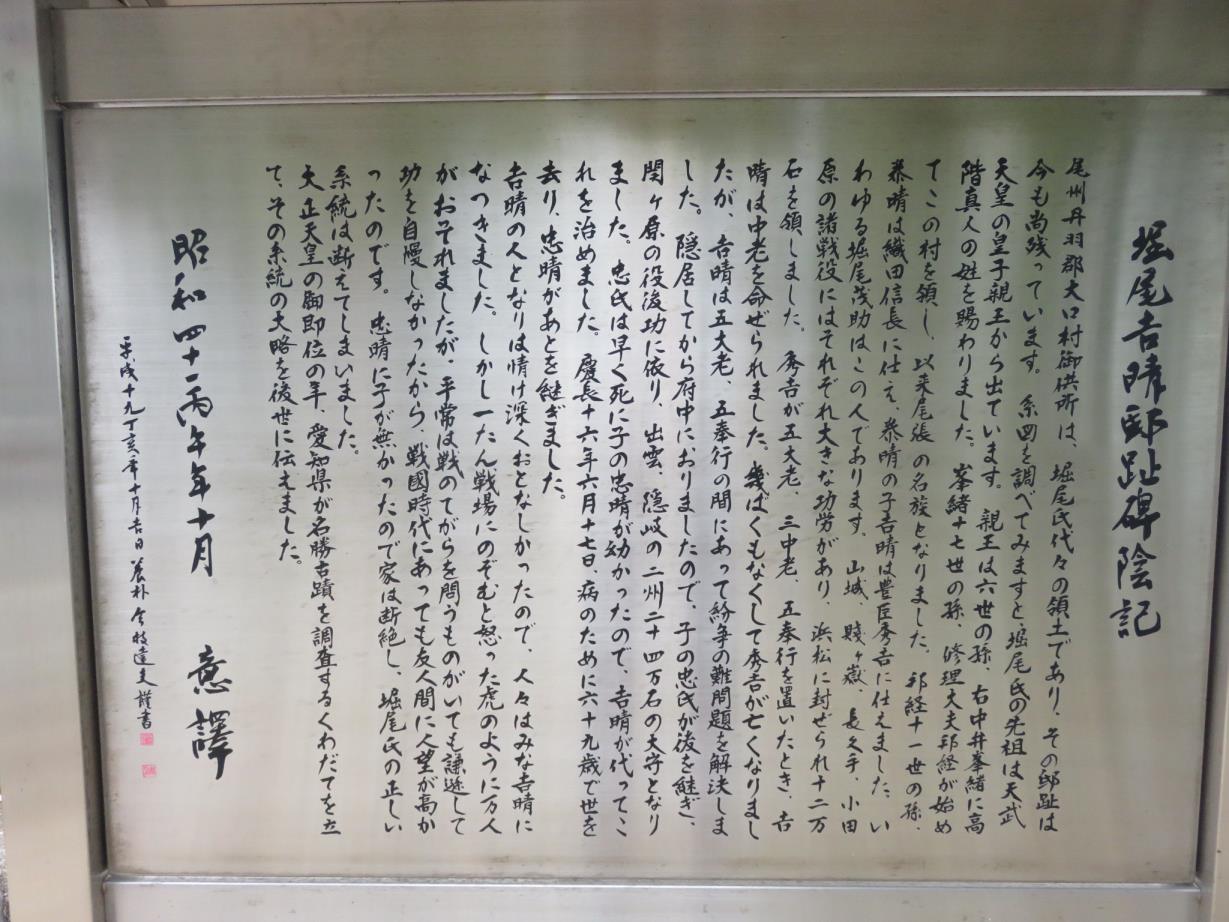 堀尾吉晴邸趾碑陰記
尾州丹羽郡大口村御供所は、堀尾氏代々の領土であり、その邸趾は
今も尚残っています。系図を調べてみますと、堀尾氏の先祖は天武
天皇の皇子親王から出ています。親王は六世の孫、右中弁峯緒に高
階真人の姓を賜わりました。峯緒十七世の孫、修理大夫邦経が始め
てこの村を領し、以来尾張の名族となりました。邦経十一世の孫、
泰晴は織田信長に仕え、泰晴の子吉晴は豊臣秀吉に仕えました、い
わゆる堀尾茂助はこの人であります。山城、賤ヶ嶽、長久手、小田
原の諸戦役にはそれぞれ大きな功労があり、浜松に封ぜられ十二万
石を領しました。秀吉が五大老、三中老、五奉行を置いたとき、吉
晴は中老を命ぜられました。幾ばくもなくして秀吉が亡くなりまし
たが、吉晴は五大老、五奉行の間にあって紛争の難問題を解決しま
した。隠居してから府中におりましたので、子の忠氏が後を継ぎ、
関ヶ原の役後功に依り、出雲、隠岐の二州二十四万石の大守となり
ました。忠氏は早く死に子の忠晴が幼かったので、吉晴が代ってこ
れを治めました。慶長十六年六月十七日、病のために六十九歳で世を
去り、忠晴があとを継ぎました。
吉晴の人となりは情け深くおとなしかったので、人々はみな吉晴に
なつきました。しかし一たん戦場にのぞむと怒った虎のように万人
がおそれましたが、平常は戦のてがらを問うものがいても謙遜して
功を自慢しなかったから、戦國時代にあっても友人間に人望が高か
ったのです。忠晴に子が無かったので家は断絶し、堀尾氏の正しい
系統は断えてしまいました。
大正天皇の御即位の年、愛知県が名勝古蹟を調査するくわだてを立
て、その系統の大略を後世に伝えました。
昭和四十一丙午年十月 意譯
平成十九丁亥年十月吉日 養朴 今枝達夫 謹書